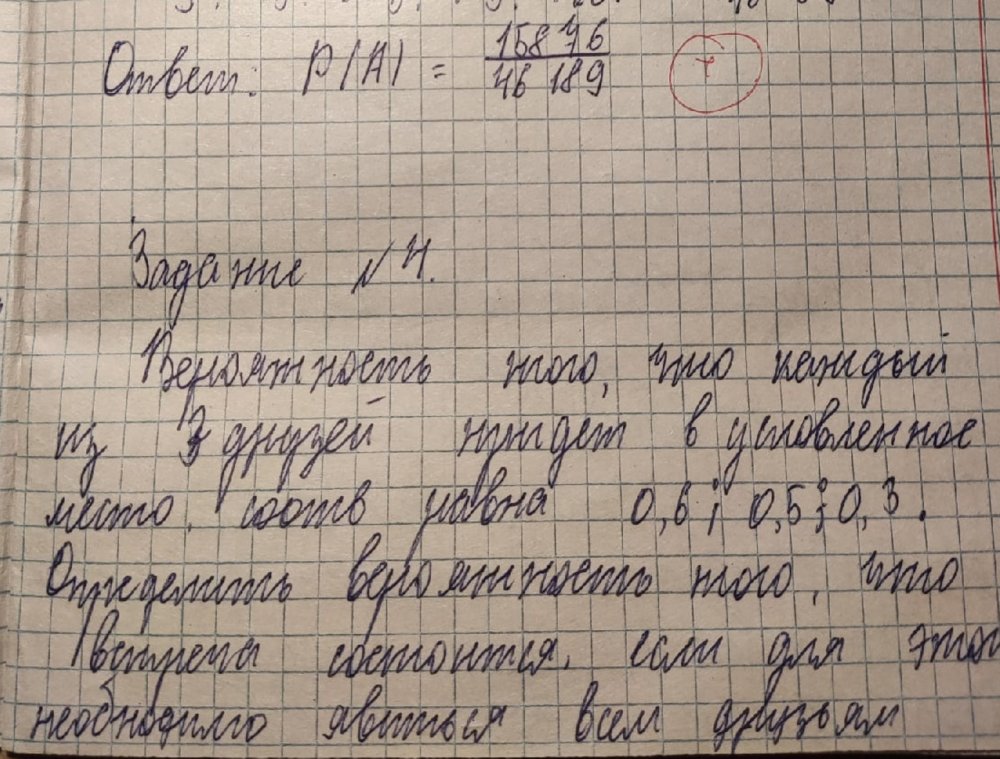 Ответ: P(A) = 15876/46189 +
Задание №4.
Вероятность того, что каждый
из 3 друзей придет в условленное
место, соотв равна 0,6; 0,5; 0,3.
Определить вероятность того, что
встреча состоится, если для этого
необходимо явиться всем друзьям